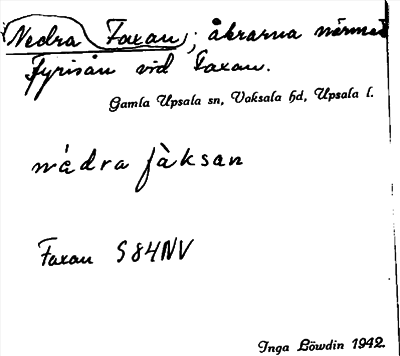 Nedra Faxan; åkrarna närmast
Fyrisån vid Faxan.
Gamla Upsala sn, Vaksala hd, Upsala l.
nèdra fàksan
Faxan S84NV
Inga Löwdin 1942.